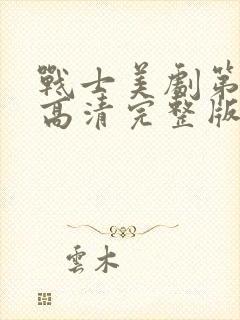 戰士美劇第
高清完整版
雲木